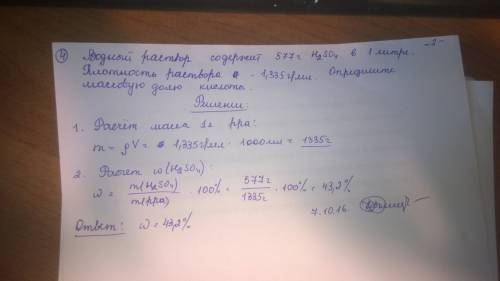 ④ Водный раствор содержит 577г H₂SO₄ в 1 литре. -2-
Плотность раствора - 1,335г/мл Определите
массовую долю кислоты.
Решение:
1. Расчёт масса 1л рра:
m = ρV = 1,335г/мл · 1000мл = 1335г
2. Расчет ω(H₂SO₄):
ω = m(H₂SO₄)/m(рра) · 100% = 577г/1335г · 100% = 43,2%
7.10.16
Ответ: ω = 43,2%